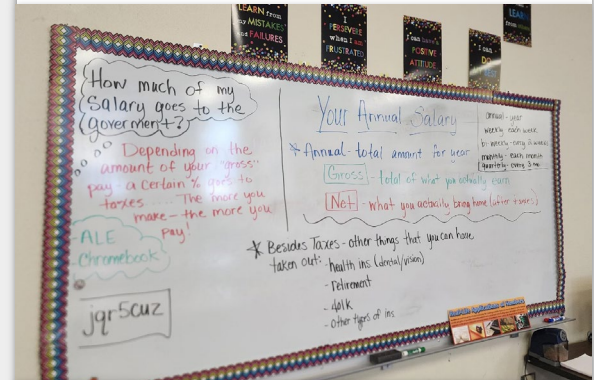 LEARN from
my MISTAKES
and FAILURES
I
PERSEVERE
when I am
FRUSTRATED
I can have a
POSITIVE
ATTITUDE
I can
DO
LEARN
How much of my
Salary goes to the
goverment?
Depending on the
amount of your "gross"
pay - a certain % goes to
taxes .... The more you
make - the more you
pay!
- ALE
- Chromebook
jqr5cuz
Your Annual Salary
* Annual - total amount for year
Gross - total of what you actually earn
Net - what you actually bring home (after taxes)
annual - year
weekly - each week
bi-weekly - every 2 weeks
monthly - each month
quarterly - every 3 mo
* Besides Taxes - other things that you can have
taken out: - health ins (dental/vision)
- retirement
- 401k
- other types of ins
Real-Life Applications of